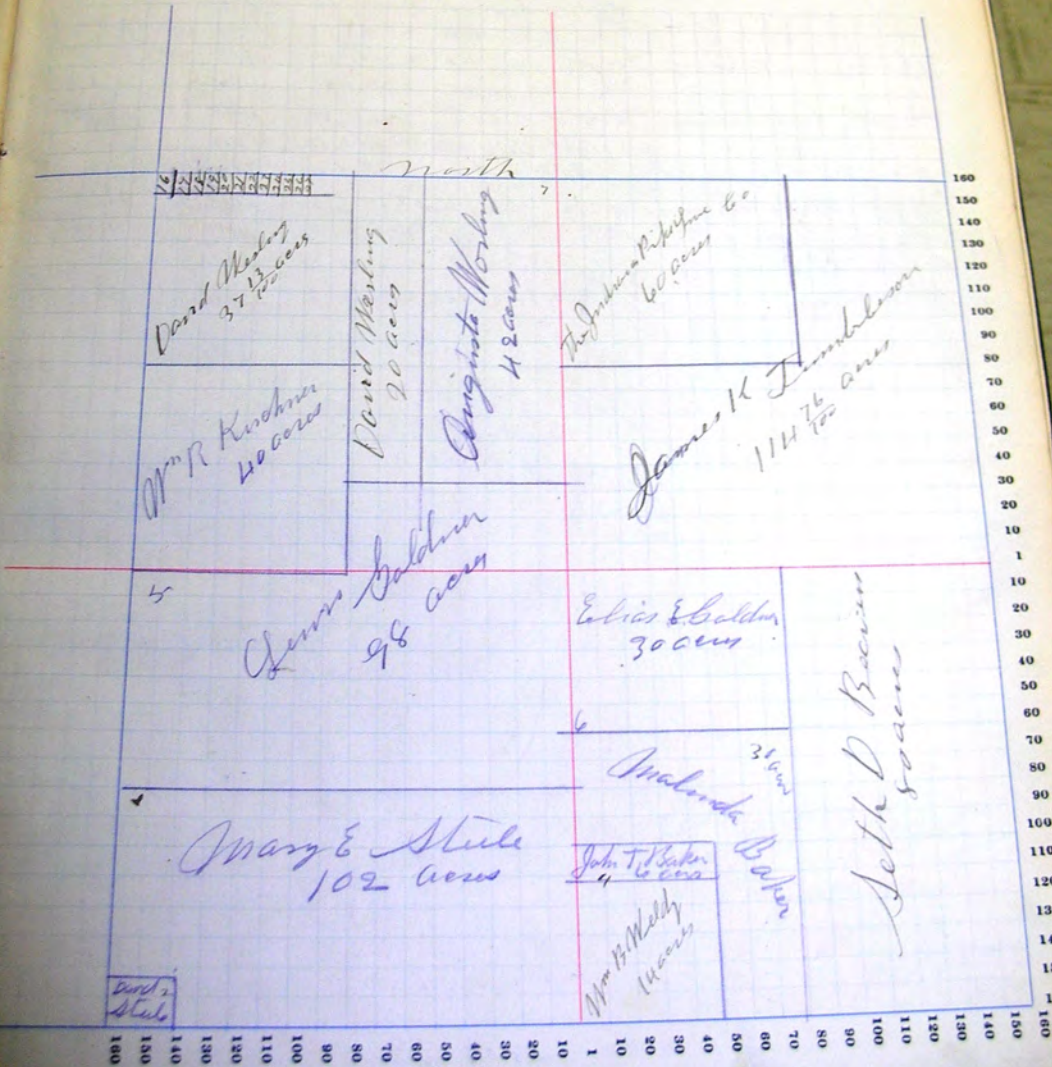 North
16
17
18
19
20
21
22
23
24
25
26
David Wesling
37 13/100 acres
David Wesling
20 acres
Augusta Wesling
42 acres
The Indiana Pipe Line Co
60 acres
Wm R Kirchner
40 acres
James K Tumbleson
114 76/100 acres
5
Lewis Galdner
98 acres
Elias E Galdner
30 acres
6
Malinda Baker
31 acres
Seth D
80 acres
Mary E Steele
102 acres
John T. Baker
6 acres
4
Wm B Weldy
14 acres
David
Steele
160
150
140
130
120
110
100
90
80
70
60
50
40
30
20
10
1
10
20
30
40
50
60
70
80
90
100
110
120
160 150 140 130 120 110 100 90 80 70 60 50 40 30 20 10 1 10 20 30 40 50 60 70 80 90 100 110 120 130 140 150 160